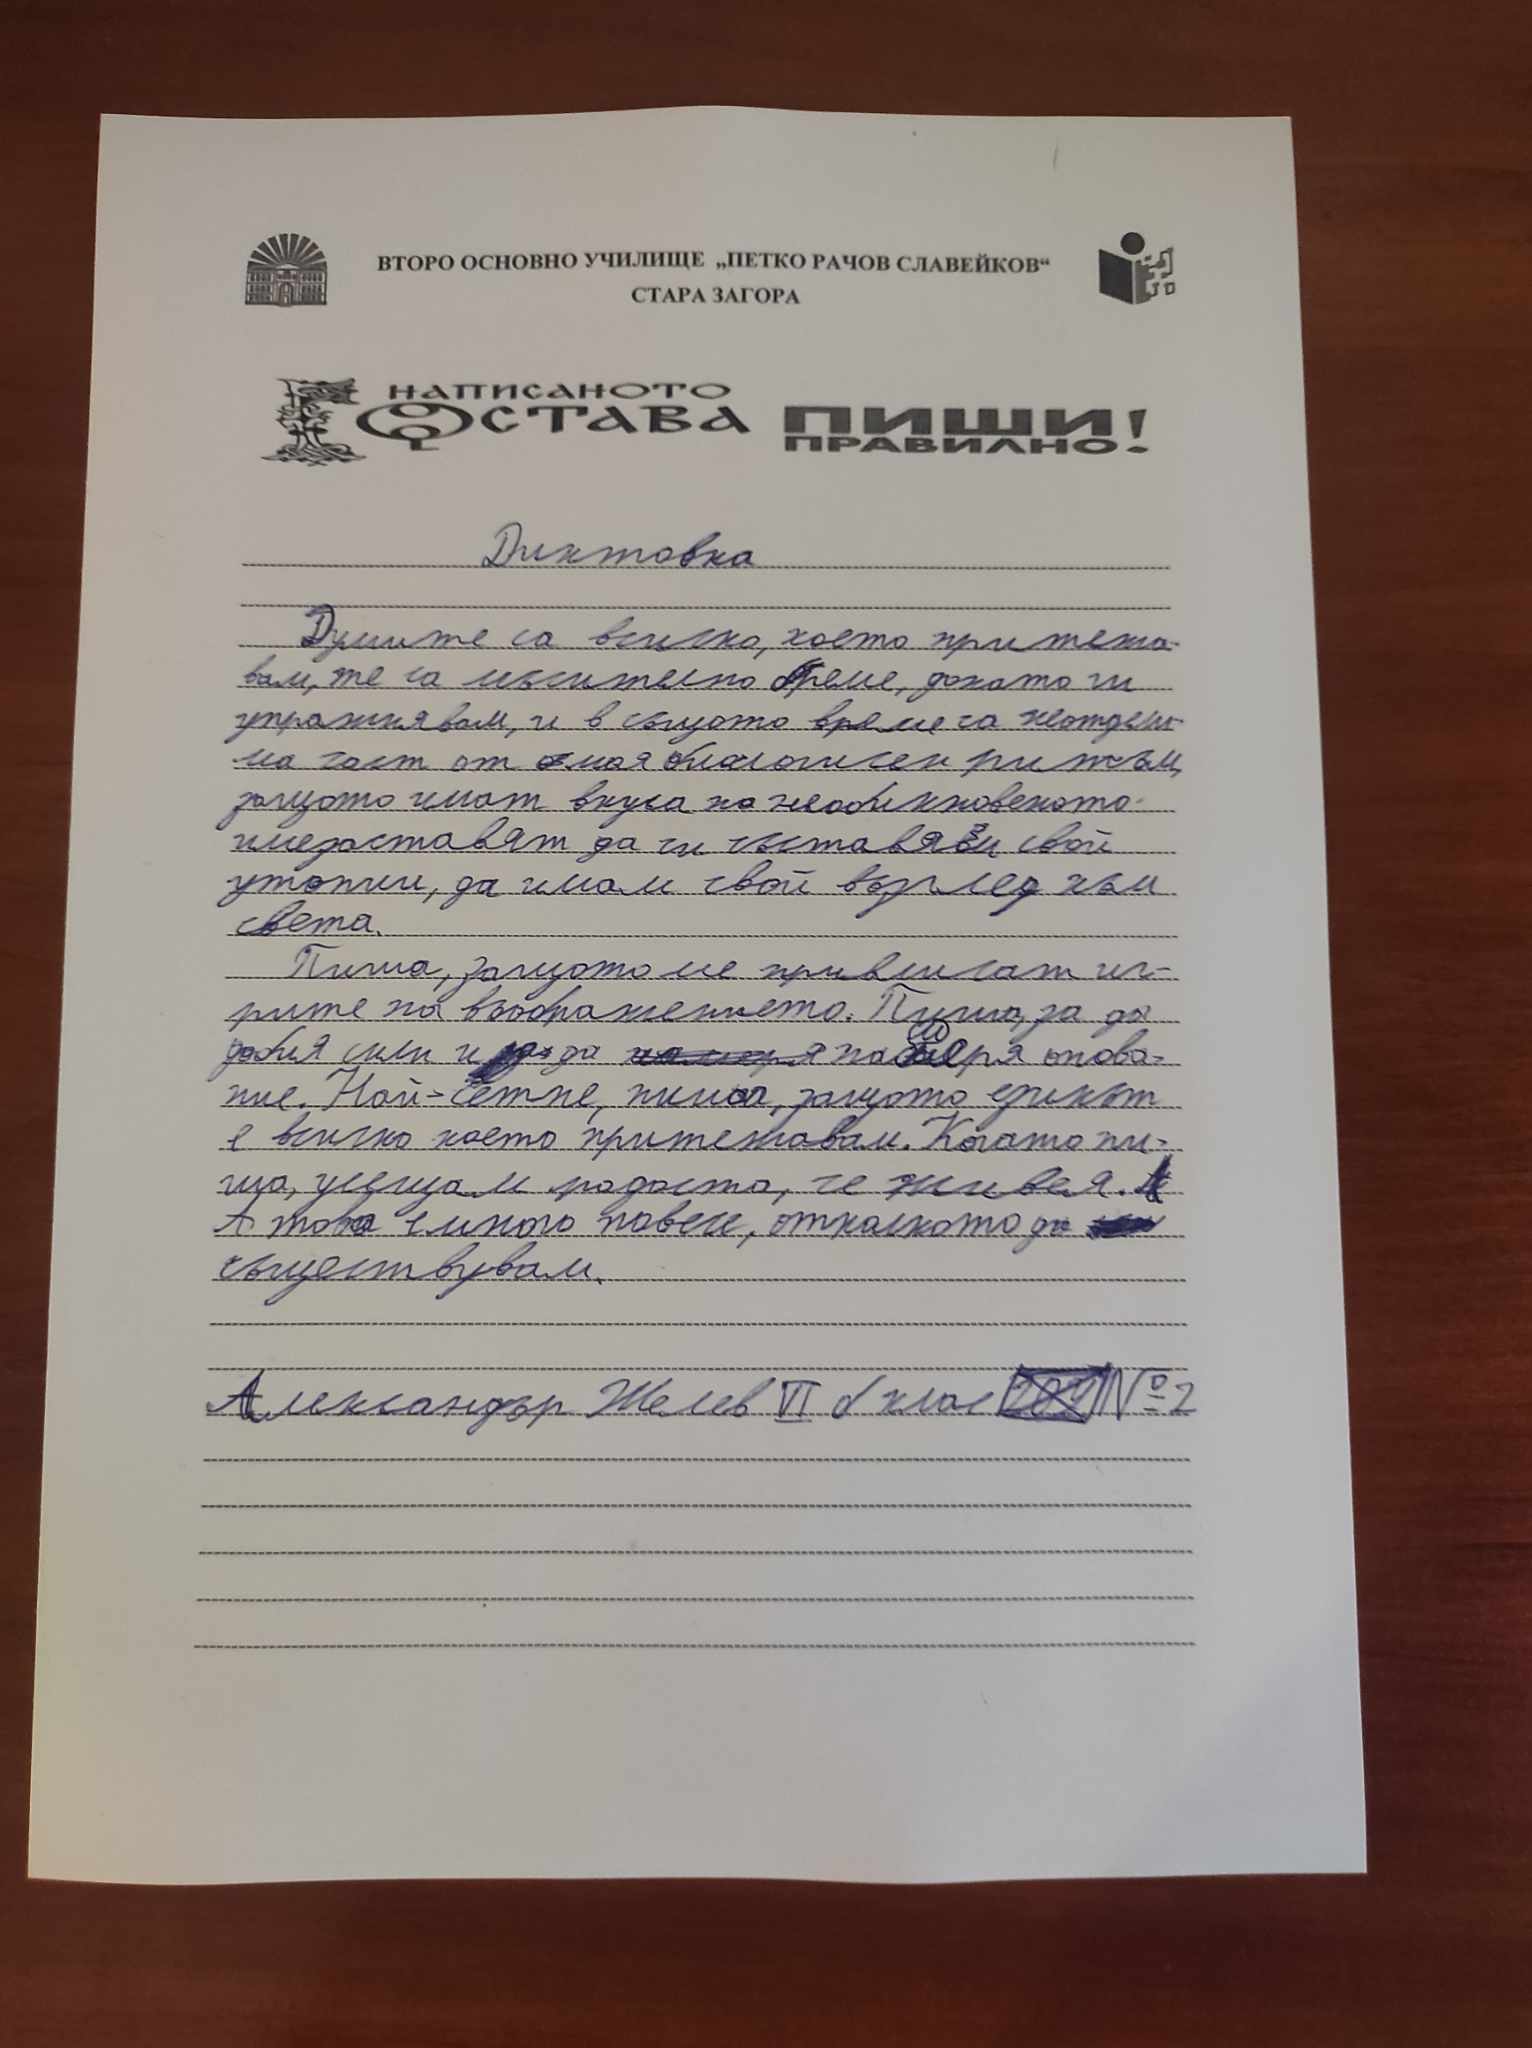 ВТОРО ОСНОВНО УЧИЛИЩЕ „ПЕТКО РАЧОВ СЛАВЕЙКОВ“
СТАРА ЗАГОРА
НАПИСАНОТО
ОСТАВА ПИШИ!
ПРАВИЛНО!
Диктовка
Думите са всичко, което притежа-
вам, те са мъчително бреме, докато ги
упражнявам, и в същото време са неотдели-
ма част от моя благописен
защото имат вкуса на необикновеното
и ме заставят да си съставям свои
утопии, да имам свой възглед към
света.
Пиша, защото ме привличат иг-
рите на въображението. Пиша, за да
добия сили и да намеря упова-
ние. Най-сетне, пиша, защото езикът
е всичко което притежавам. Когато пи-
ша, усещам радостта, че живея.
А това е много повече, отколкото да
съществувам.
Александър Желев VI б клас №2